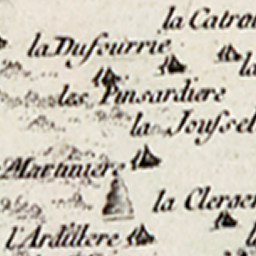 la Catrou
la Dufourrie
la
les Pinsardiere
la Joussel
Martiniere
la Clerger
l'Ardillere